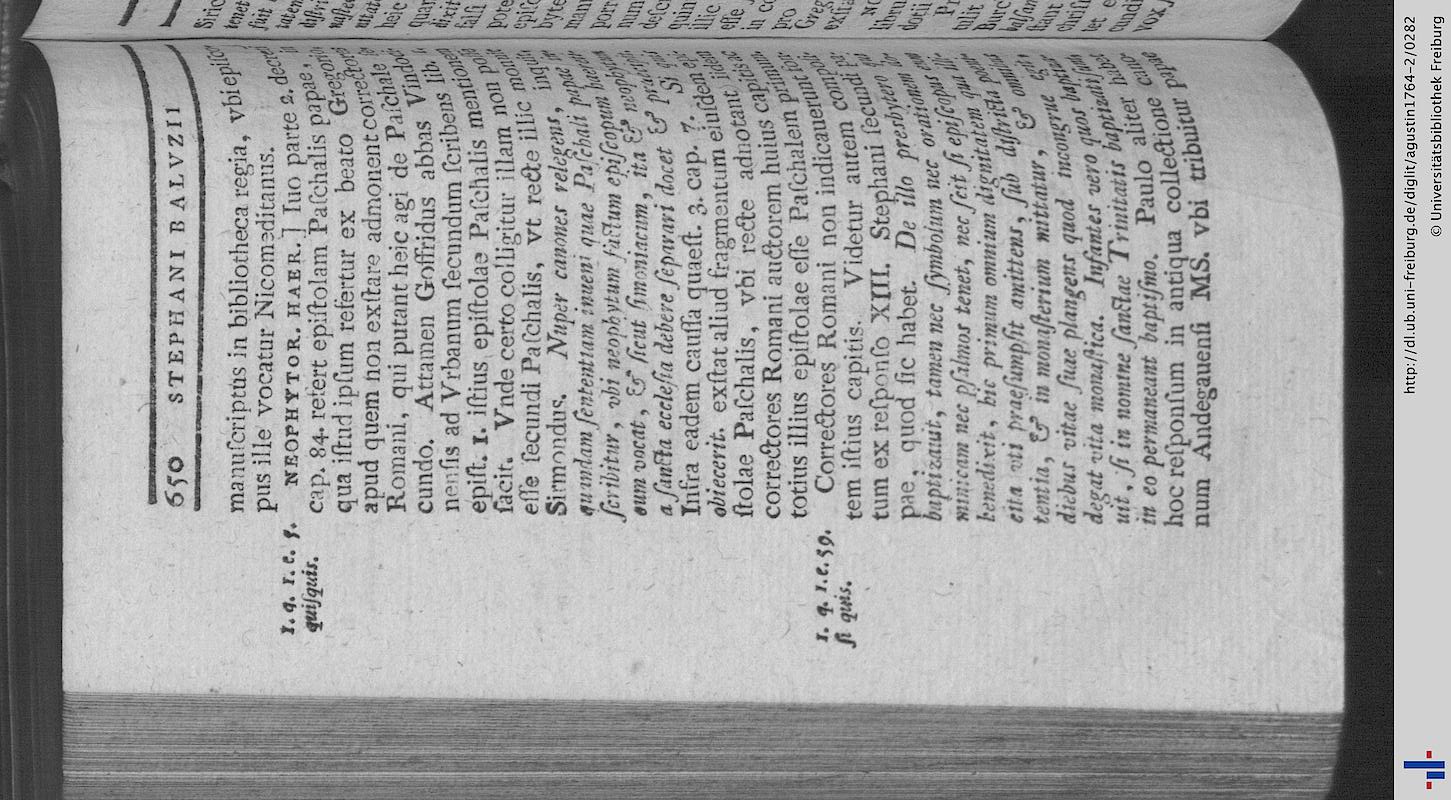 650 STEPHANI BALVZII
manuſcriptus in bibliotheca regia, vbi epiſco
pus ille vocatur Nicomeditanus.
1. q. 1. c. 5.
quiſquis.
NEOPHYTOR. HAER.] Iuo parte 2. decreti
cap. 84. refert epiſtolam Paſchalis papae,
qua iſtud ipſum refertur ex beato Gregorio
apud quem non exſtare admonent correctores
Romani, qui putant heic agi de Paſchale
cundo. Attamen Goffridus abbas Vindoci
nenſis ad Vrbanum ſecundum ſcribens lib.
epiſt. 1. iſtius epiſtolae Paſchalis mentionem
facit. Vnde certo colligitur illam non poſſe
eſſe ſecundi Paſchalis, vt recte illic monuit
Sirmondus. Nuper canones relegens, inquit
quandam ſententiam inueni quae Paſchali papae
ſcribitur, vbi neophytum factum epiſcopum haereti
cum vocat, & ſicut ſimoniacum, ita & neophytum
a ſancta eccleſia debere ſeparari docet & praecipit
Infra eadem cauſſa quaeſt. 3. cap. 7. Si quis
obiecerit. exſtat aliud fragmentum eiuſdem epi
ſtolae Paſchalis, vbi recte adnotant iidem
correctores Romani auctorem huius capitis
totius illius epiſtolae eſſe Paſchalem primum
1. q. 1. c. 59.
ſi quis.
Correctores Romani non indicauerunt
tem iſtius capitis. Videtur autem compo
tum ex reſponſo XIII. Stephani ſecundi
pae, quod ſic habet. De illo presbytero
baptizauit, tamen nec ſymbolum nec orationem
minicam nec pſalmos tenet, nec ſcit ſi epiſcopus
benedixit, hic primum omnium dignitatem
cita vti praeſumpſit amittens, ſub diſtricta
tentia, & in monaſterium mittatur, & omnibus
diebus vitae ſuae plangens quod incongrue
degat vita monaſtica. Infantes vero quos
uit, ſi in nomine ſanctae Trinitatis baptizati
in eo permaneant bapiſmo. Paulo aliter
hoc reſponſum in antiqua collectione
num Andegauenſi MS. vbi tribuitur papae
http://dl.ub.uni-freiburg.de/diglit/agustin1764-2/0282
© Universitätsbibliothek Freiburg